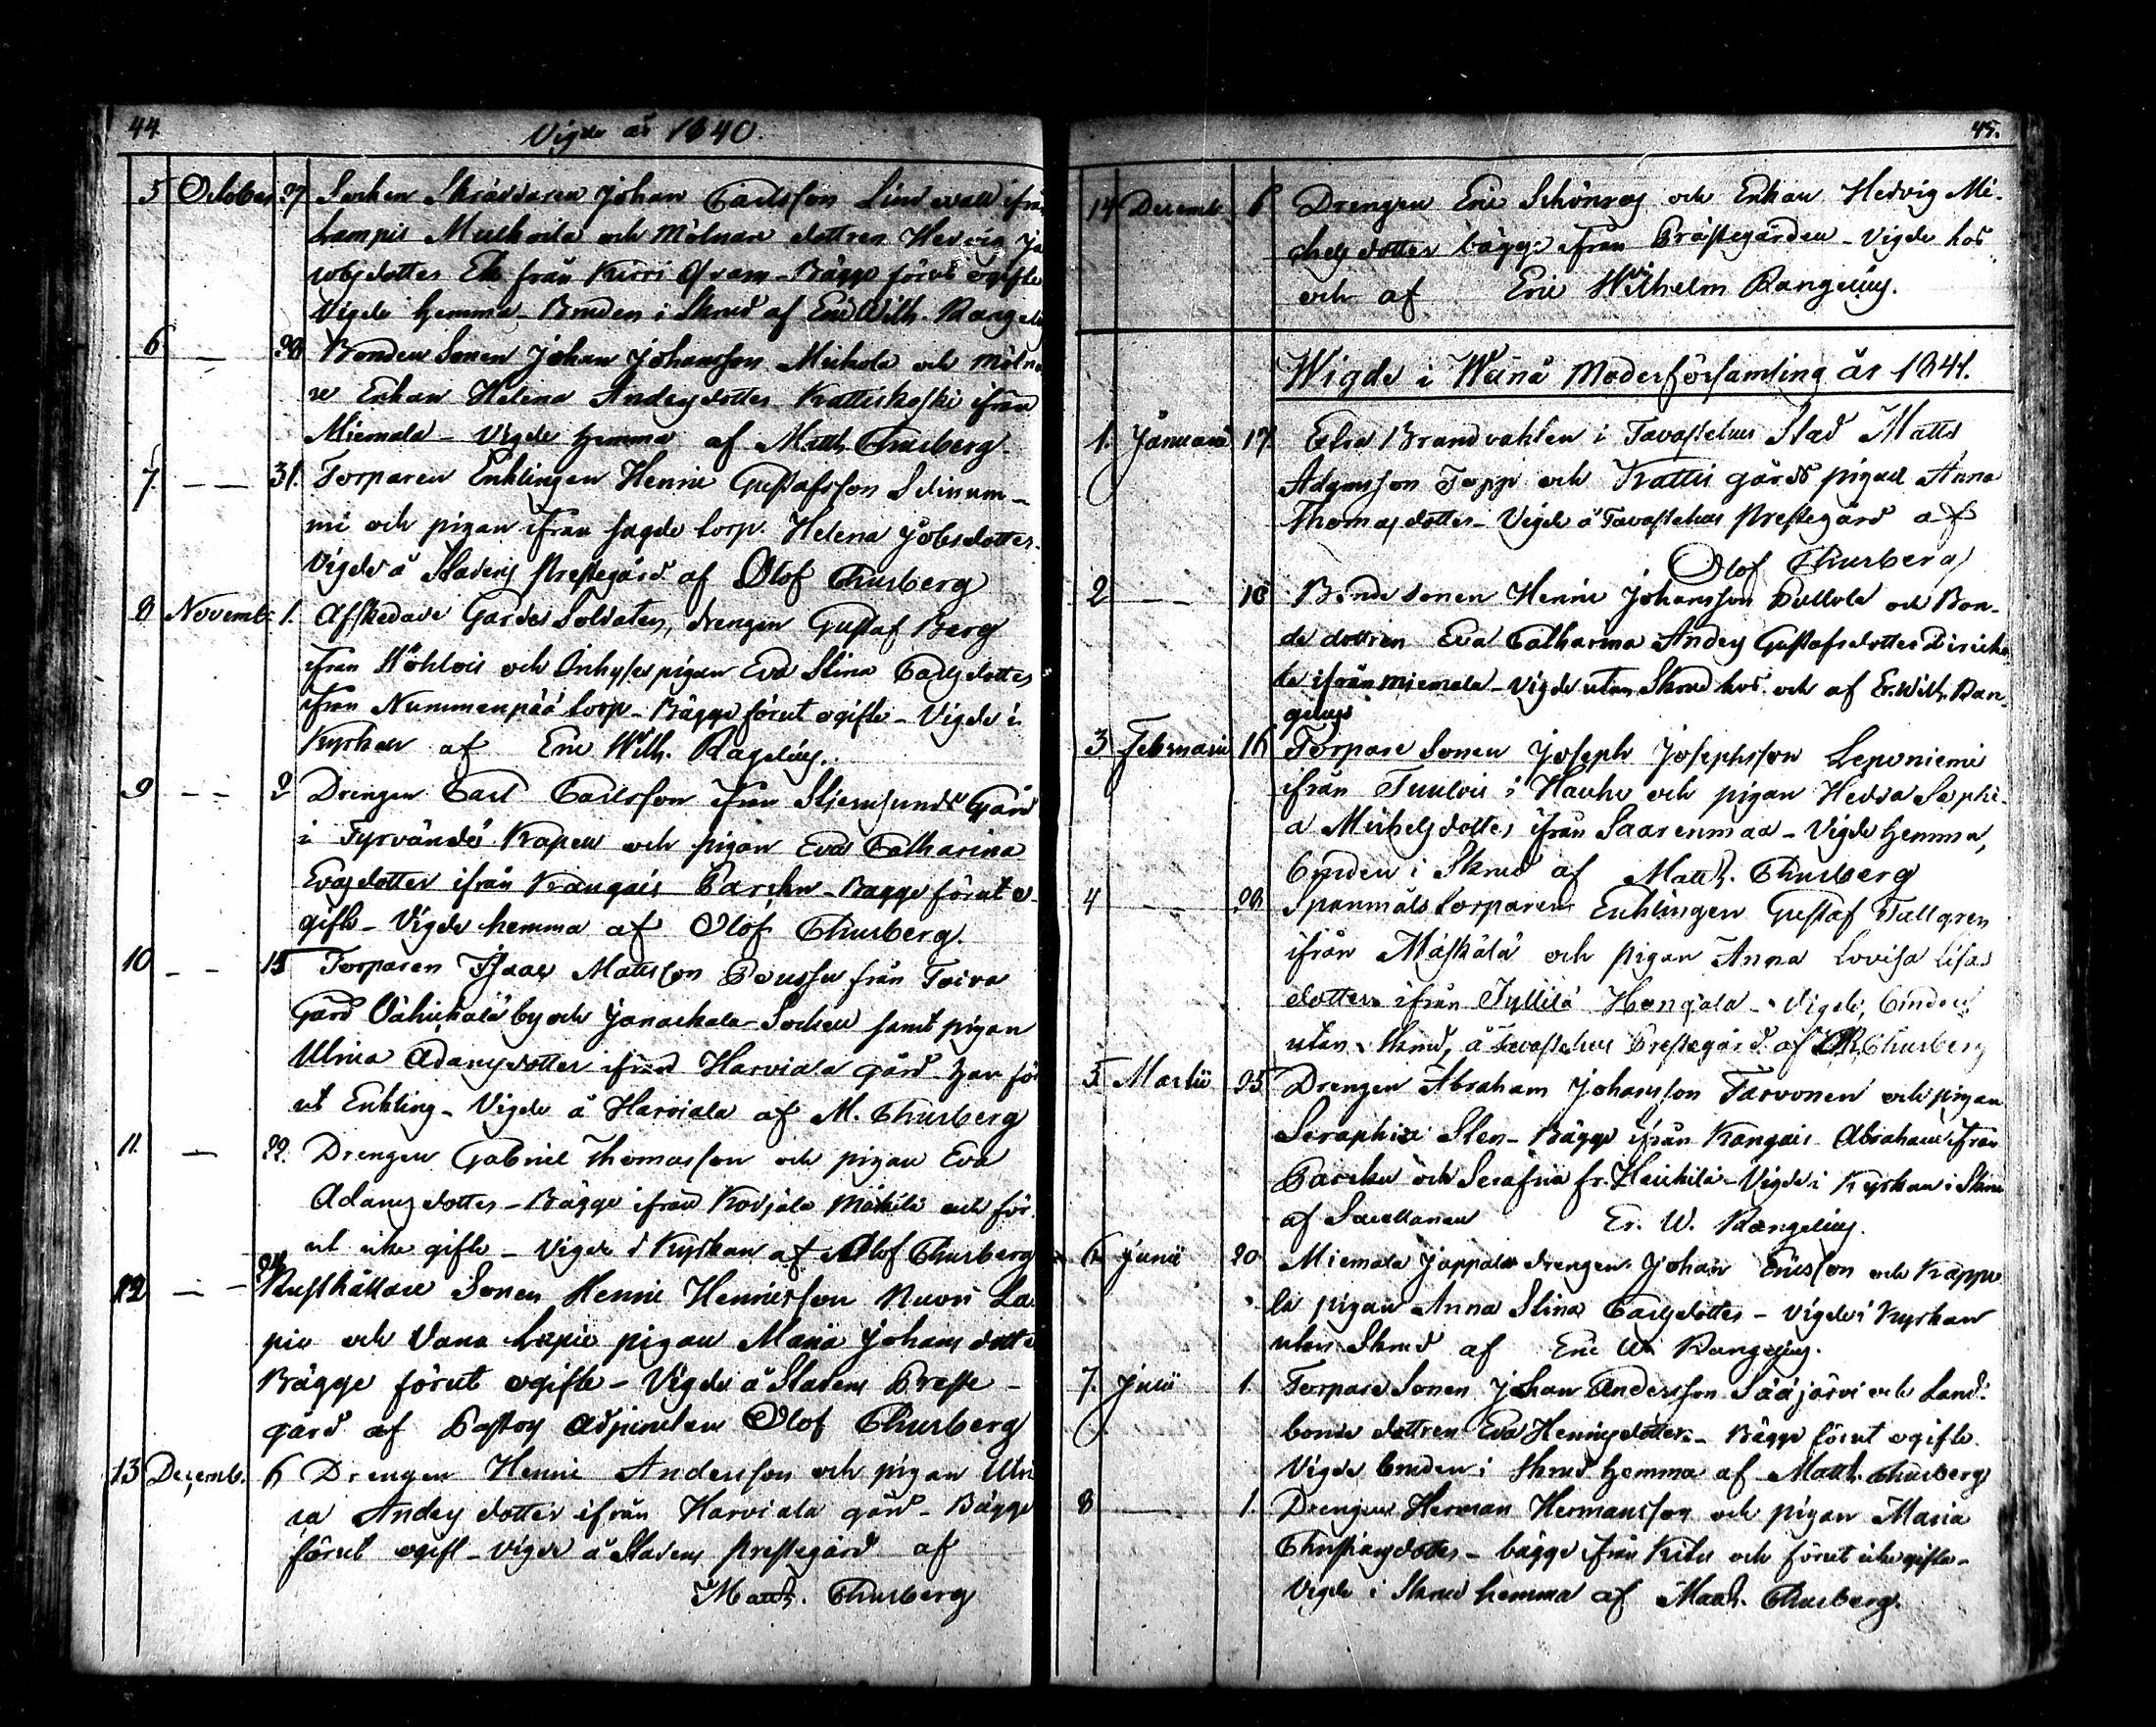 44.
Vigde år 1840.
5 October 27 Socken Skräddaren Johan Carlsson Lindvall ifrån
Lampis Muskoila och Mölnare dottren Hedvig Ja
cobsdotter Ek från Kirri Qvarn - Bägge förut ogifte
Vigde hemma - Bruden i Skrud af Eric Wilh. Rangeli
6 — 28 Bonden Sonen Johan Johansson Mickola och Mölna
re Enkan Helena Andersdotter Kattiskoski ifrån
Miemala - Vigde hemma af Matth. Thusberg
7. — — 31. Torparen Enklingen Henric Gustafsson
mi och pigan ifrån sagde torp. Helena Jöbsdotter.
Vigde å Stadens Prestegård af Olof Thusberg
8 Novemb. 1. Afskedade Gardes Soldaten, drengen Gustaf Berg
ifrån Wöhlois och Inhyses pigan Eva Stina Carlsdotter
ifrån Nummenpää torp - Bägge förut ogifte - Vigde i
Kyrkan af Eric Wilh. Ragelius.
9 — — 2 Drengen Carl Carlsson ifrån Stjernsunds Gård
i Tyrvändö Kapell och pigan Eva Catharina
Evasdotter ifrån Kangais - Bägge förut o-
gifte - Vigde hemma af Olof Thusberg.
10 — — 15 Torparen Isaac Mattsson från Toivo
Gård Vähikkälä by och Janackala Socken samt pigan
Ulrica Adamsdotter ifrån Harviala gård - han för
ut Enkling - Vigde å Harviala af M. Thusberg
11. — 22. Drengen Gabriel Thomasson och pigan Eva
Adamsdotter - Bägge ifrån Kovjala Mäkilä och för-
ut icke gifte - Vigde i Kyrkan af Olof Thusberg
12 — — 24 Rusthållare Sonen Henric Henricsson Nuori La
pio och Vana Lapio pigan Maria Johans dotter
Bägge förut ogifte - Vigde å Stadens Preste-
gård af Pastors Adjuncten Olof Thusberg
13 Decemb. 6 Drengen Henric Andersson och pigan Ulri
ca Anders dotter ifrån Harviala gård - Bägge
förut ogift - Vigde å Stadens prestegård af
Matth. Thusberg
45.
14 Decemb. 6 Drengen Eric Schönrog och Enkan Hedvig Mi-
chelsdotter bägge ifrån Prästegården - Vigde hos
och af Eric Wilhelm Rangelius.
Wigde i Wånå Moderförsamling år 1841.
1. Januarii 17 Extra Brandvakten i Tavastehus Stad Matts
Adamsson Toppi och Kattis gårds pigan Anna
Thomasdotter - Vigde å Tavastehus Prestegård af
Olof Thusberg
2 — 18 Bonde sonen Henric Johansson Pullola och Bon-
de dottren Eva Catharina Anders Gustafsdotter
la ifrån Miemala - Vigde utan Skrud hos och af Er. Wilh. Ran-
gelius
3 Februarii 16 Torpare Sonen Joseph Josephsson Leponiemi
ifrån Tuulois i Hauho och pigan Hedda Sophi-
a Michelsdotter ifrån Saarenmaa - Vigde hemma,
Bruden i Skrud af Matth. Thusberg
4 — 28 Spanmåls torparen Enklingen Gustaf Tallgren
ifrån Mäskälä och pigan Anna Lovisa Lisas
dotter ifrån Jyllilä Hangala - Vigde, Bruden
utan Skrud, å Tavastehus Prestegård af M. Thusberg
5 Martii 25 Drengen Abraham Johansson Tarvonen och pigan
Seraphia Sten - Bägge ifrån Kangais Abraham ifrån
och Serafia fr. Heickilä - Vigde i Kyrkan i Skru
af Sacellanen Er. W. Rangelius.
6. Junii 20 Miemala Jappala drengen Johan Ericsson och Kappo
la pigan Anna Stina Carlsdotter - Vigde i Kyrkan
utan Skrud af Eric W. Rangelius.
7. Julii 1. Torpare Sonen Johan Andersson Sääjärvi och Land-
bonde dottren Eva Henricsdotter - Bägge förut ogifte
Vigde Bruden i Skrud hemma af Matth. Thusberg
8 — 1. Drengen Herman Hermansson och pigan Maria
Christiansdotter - bägge ifrån Kito och förut icke gifte -
Vigde i Skrud hemma af Matth. Thusberg.